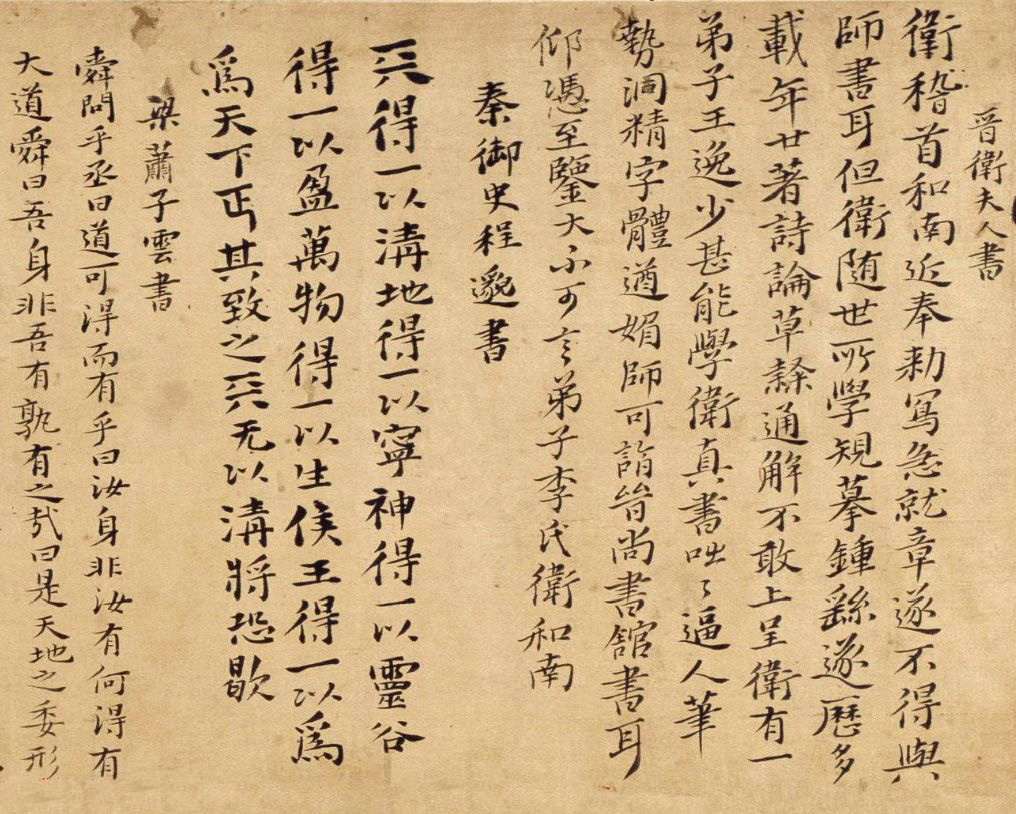 晉衛夫人書
衛稽首和南近奉勑寫急就章遂不得與
師書耳但衛随世所學規摹鍾繇遂歷多
載年廿著詩論草隷通解不敢上呈衛有一
弟子王逸少甚能學衛真書咄〻逼人筆
勢洞精字體遒媚師可詣晉尚書館書耳
仰憑至鑒大不可言弟子李氏衛和南
秦御史程邈書
天得一以清地得一以寧神得一以靈谷
得一以盈萬物得一以生侯王得一以爲
爲天下正其致之天无以清將恐歇
梁蕭子雲書
舜問乎丞曰道可得而有乎曰汝身非汝有何得有
大道舜曰吾身非吾有孰有之哉曰是天地之委形